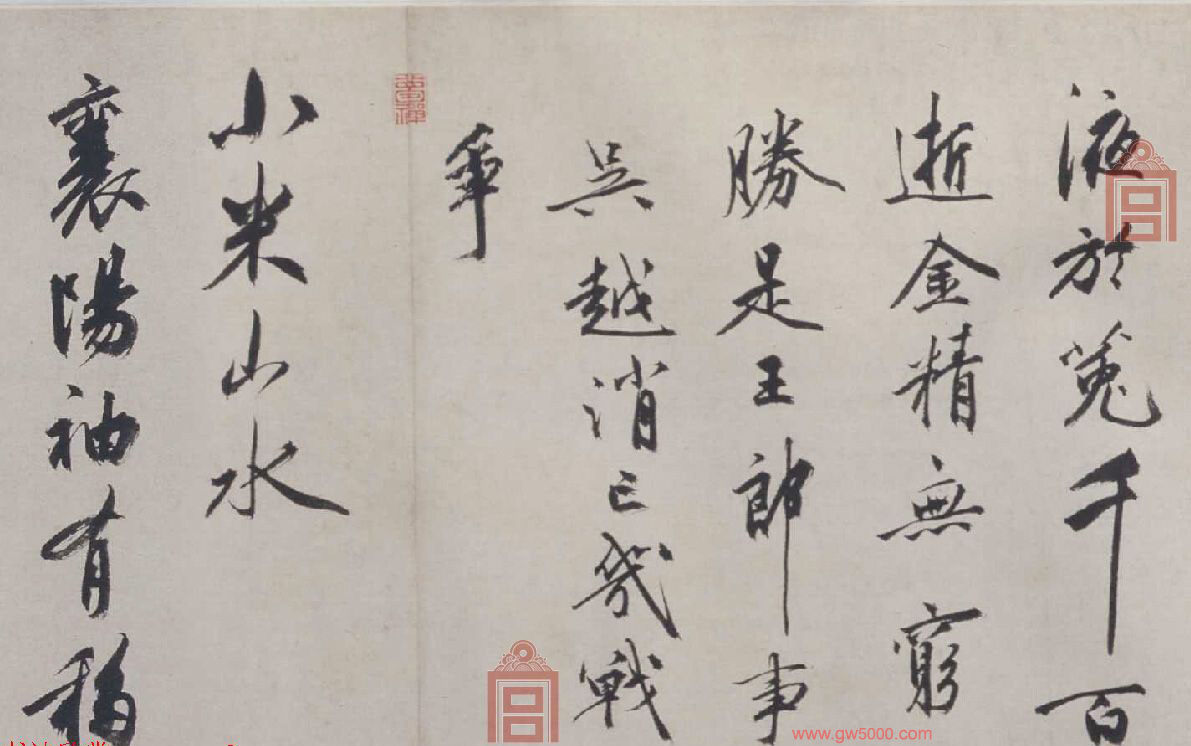 液於菟千百
逝金精無窮
勝是王郎事
吳越消已幾戰
爭
小米山水
襄陽袖有移
www.gw5000.com